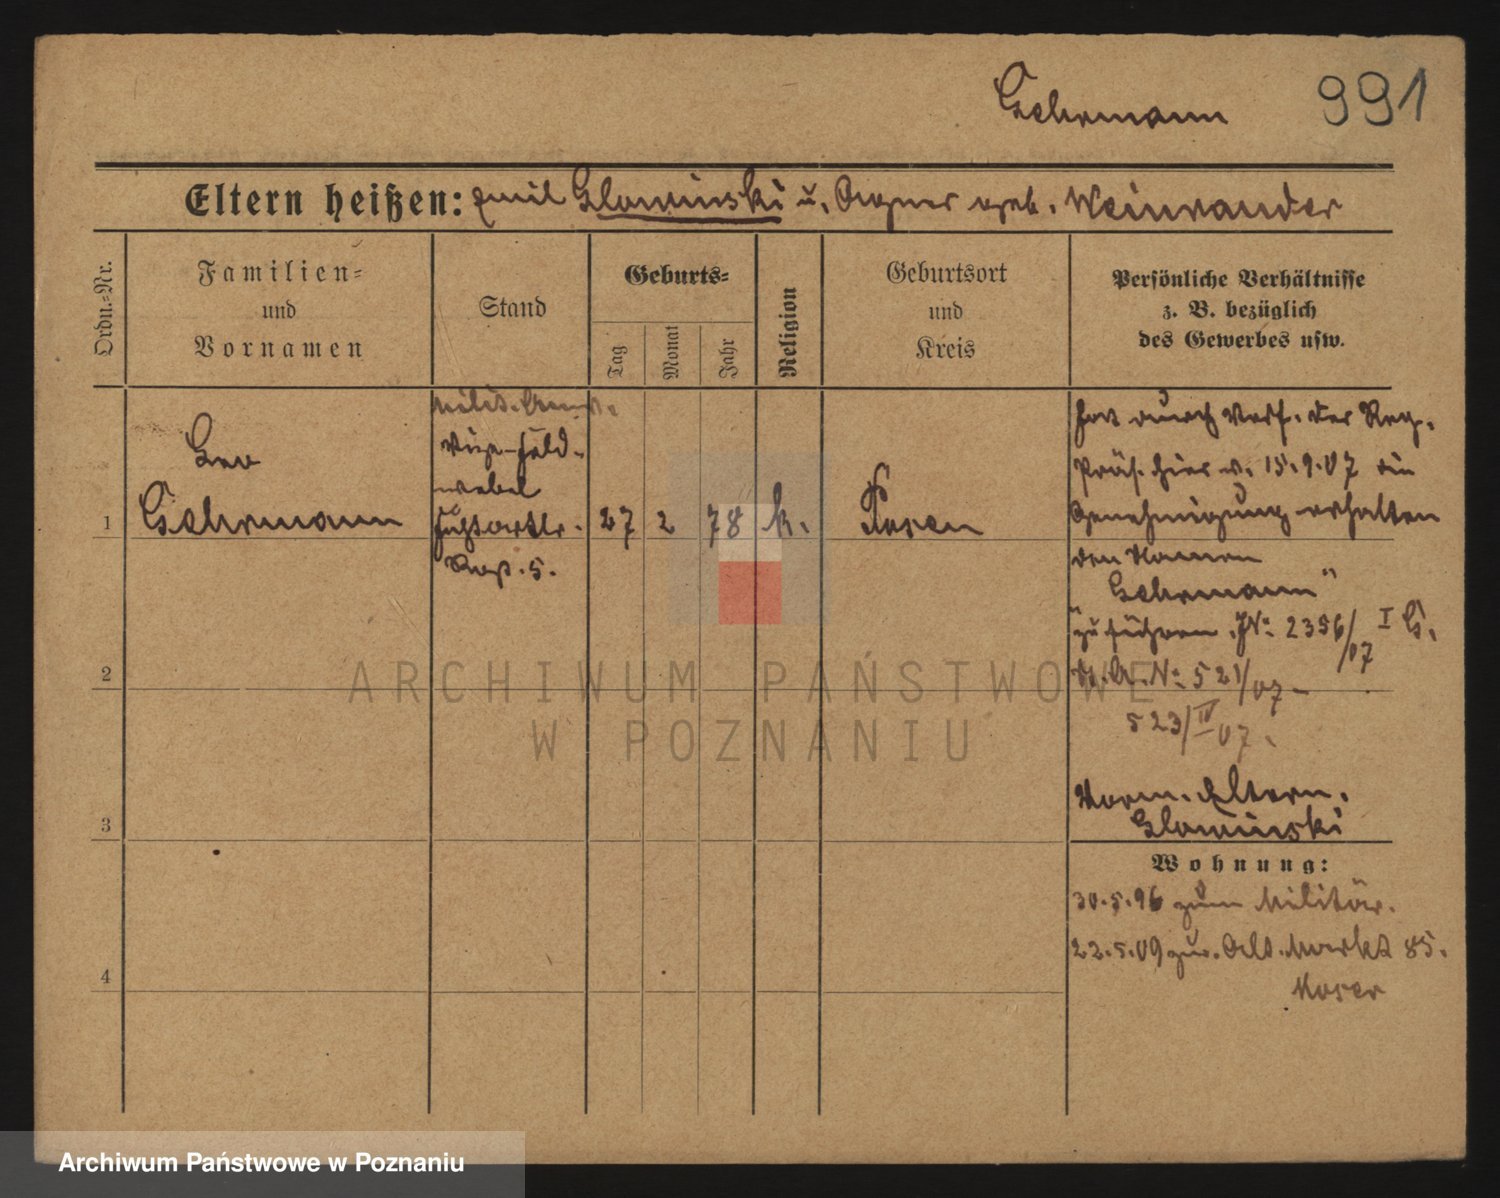 Gehrmann 991
Eltern heißen: Emil Glowinski u. Agnes geb. Weinrander
Ordn.-Nr.
Familien-
und
Vornamen
Stand
Geburts-
Tag
Monat
Jahr
Religion
Geburtsort
und
Kreis
Persönliche Verhältnisse
z. B. bezüglich
des Gewerbes usw.
1
Leo
Gehrmann
Vize-Feld-
webel
Fußartlr.
Rgt. 5.
27
2
78
k.
Posen
Hat durch Verf. des Reg.
Präs. hier v. 15.9.07 die
Genehmigung erhalten
den Namen
"Gehrmann"
zu führen. J№ 2356/07 I G.
№ 521/07
523/IV 07.
Vorm. Eltern.
Glowinski
2
3
4
Wohnung:
30.5.96 zum Militär.
22.5.09 zur. Alt. Markt 85.
Moser
ARCHIWUM PAŃSTWOWE
W POZNANIU
Archiwum Państwowe w Poznaniu